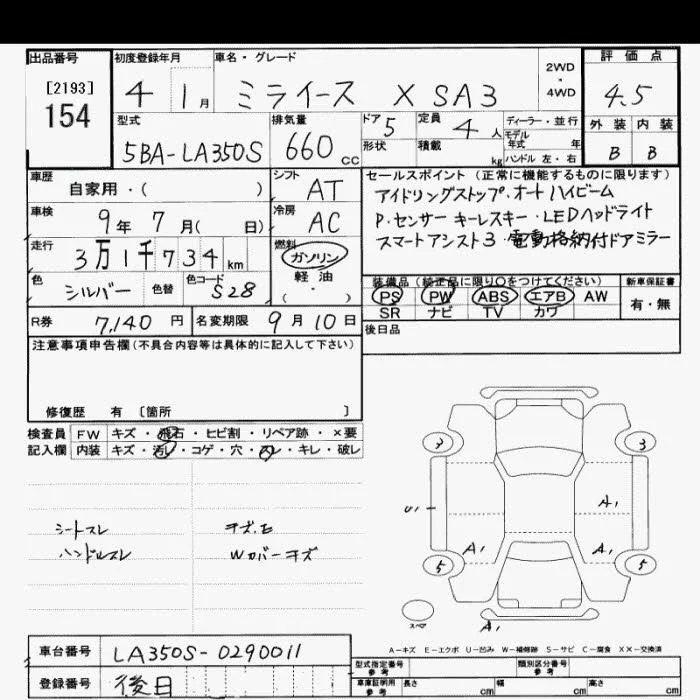 出品番号
[2193]
154
初度登録年月
4 1月
車名・グレード
ミライース X SA3
2WD
・
4WD
評価点
4.5
外装 内装
B B
型式
5BA-LA350S
排気量
660 cc
ドア 5
形状
定員 4 人
積載 kg
ディーラー・並行
モデル
年式 年
ハンドル 左・右
車歴
自家用・( )
シフト AT
車検
9年 7月( 日)
冷房 AC
走行
3万1千734 km
燃料
ガソリン
軽油
( ・ )
色 シルバー
色替
色コード S28
R券 7,140 円
名変期限 9月10日
セールスポイント (正常に機能するものに限ります)
アイドリングストップ・オートハイビーム
P・センサー キーレスキー・LEDヘッドライト
スマートアシスト3・電動格納付ドアミラー
装備品 (純正品に限り○をつけてください)
PS PW ABS エアB AW
SR ナビ TV カワ
新車保証書
有・無
後日品
注意事項申告欄(不具合内容等は具体的に記入して下さい)
修復歴 有 [箇所 ]
検査員
記入欄
FW キズ・飛石・ヒビ割・リペア跡・×要
内装 キズ・汚レ・コゲ・穴・スレ・キレ・破レ
シートスレ
ハンドルスレ
キズ.E
Wカバーキズ
3 3
U1
A1
A1 A1
5 5
スペア
A1
A-キズ E-エクボ U-凹み W-補修跡 S-サビ C-腐食 XX-交換済
車台番号 LA350S-0290011
登録番号 後日
型式指定番号
参考
類別区分番号
参考
車庫証明用
参考
長さ cm 幅 cm 高さ cm